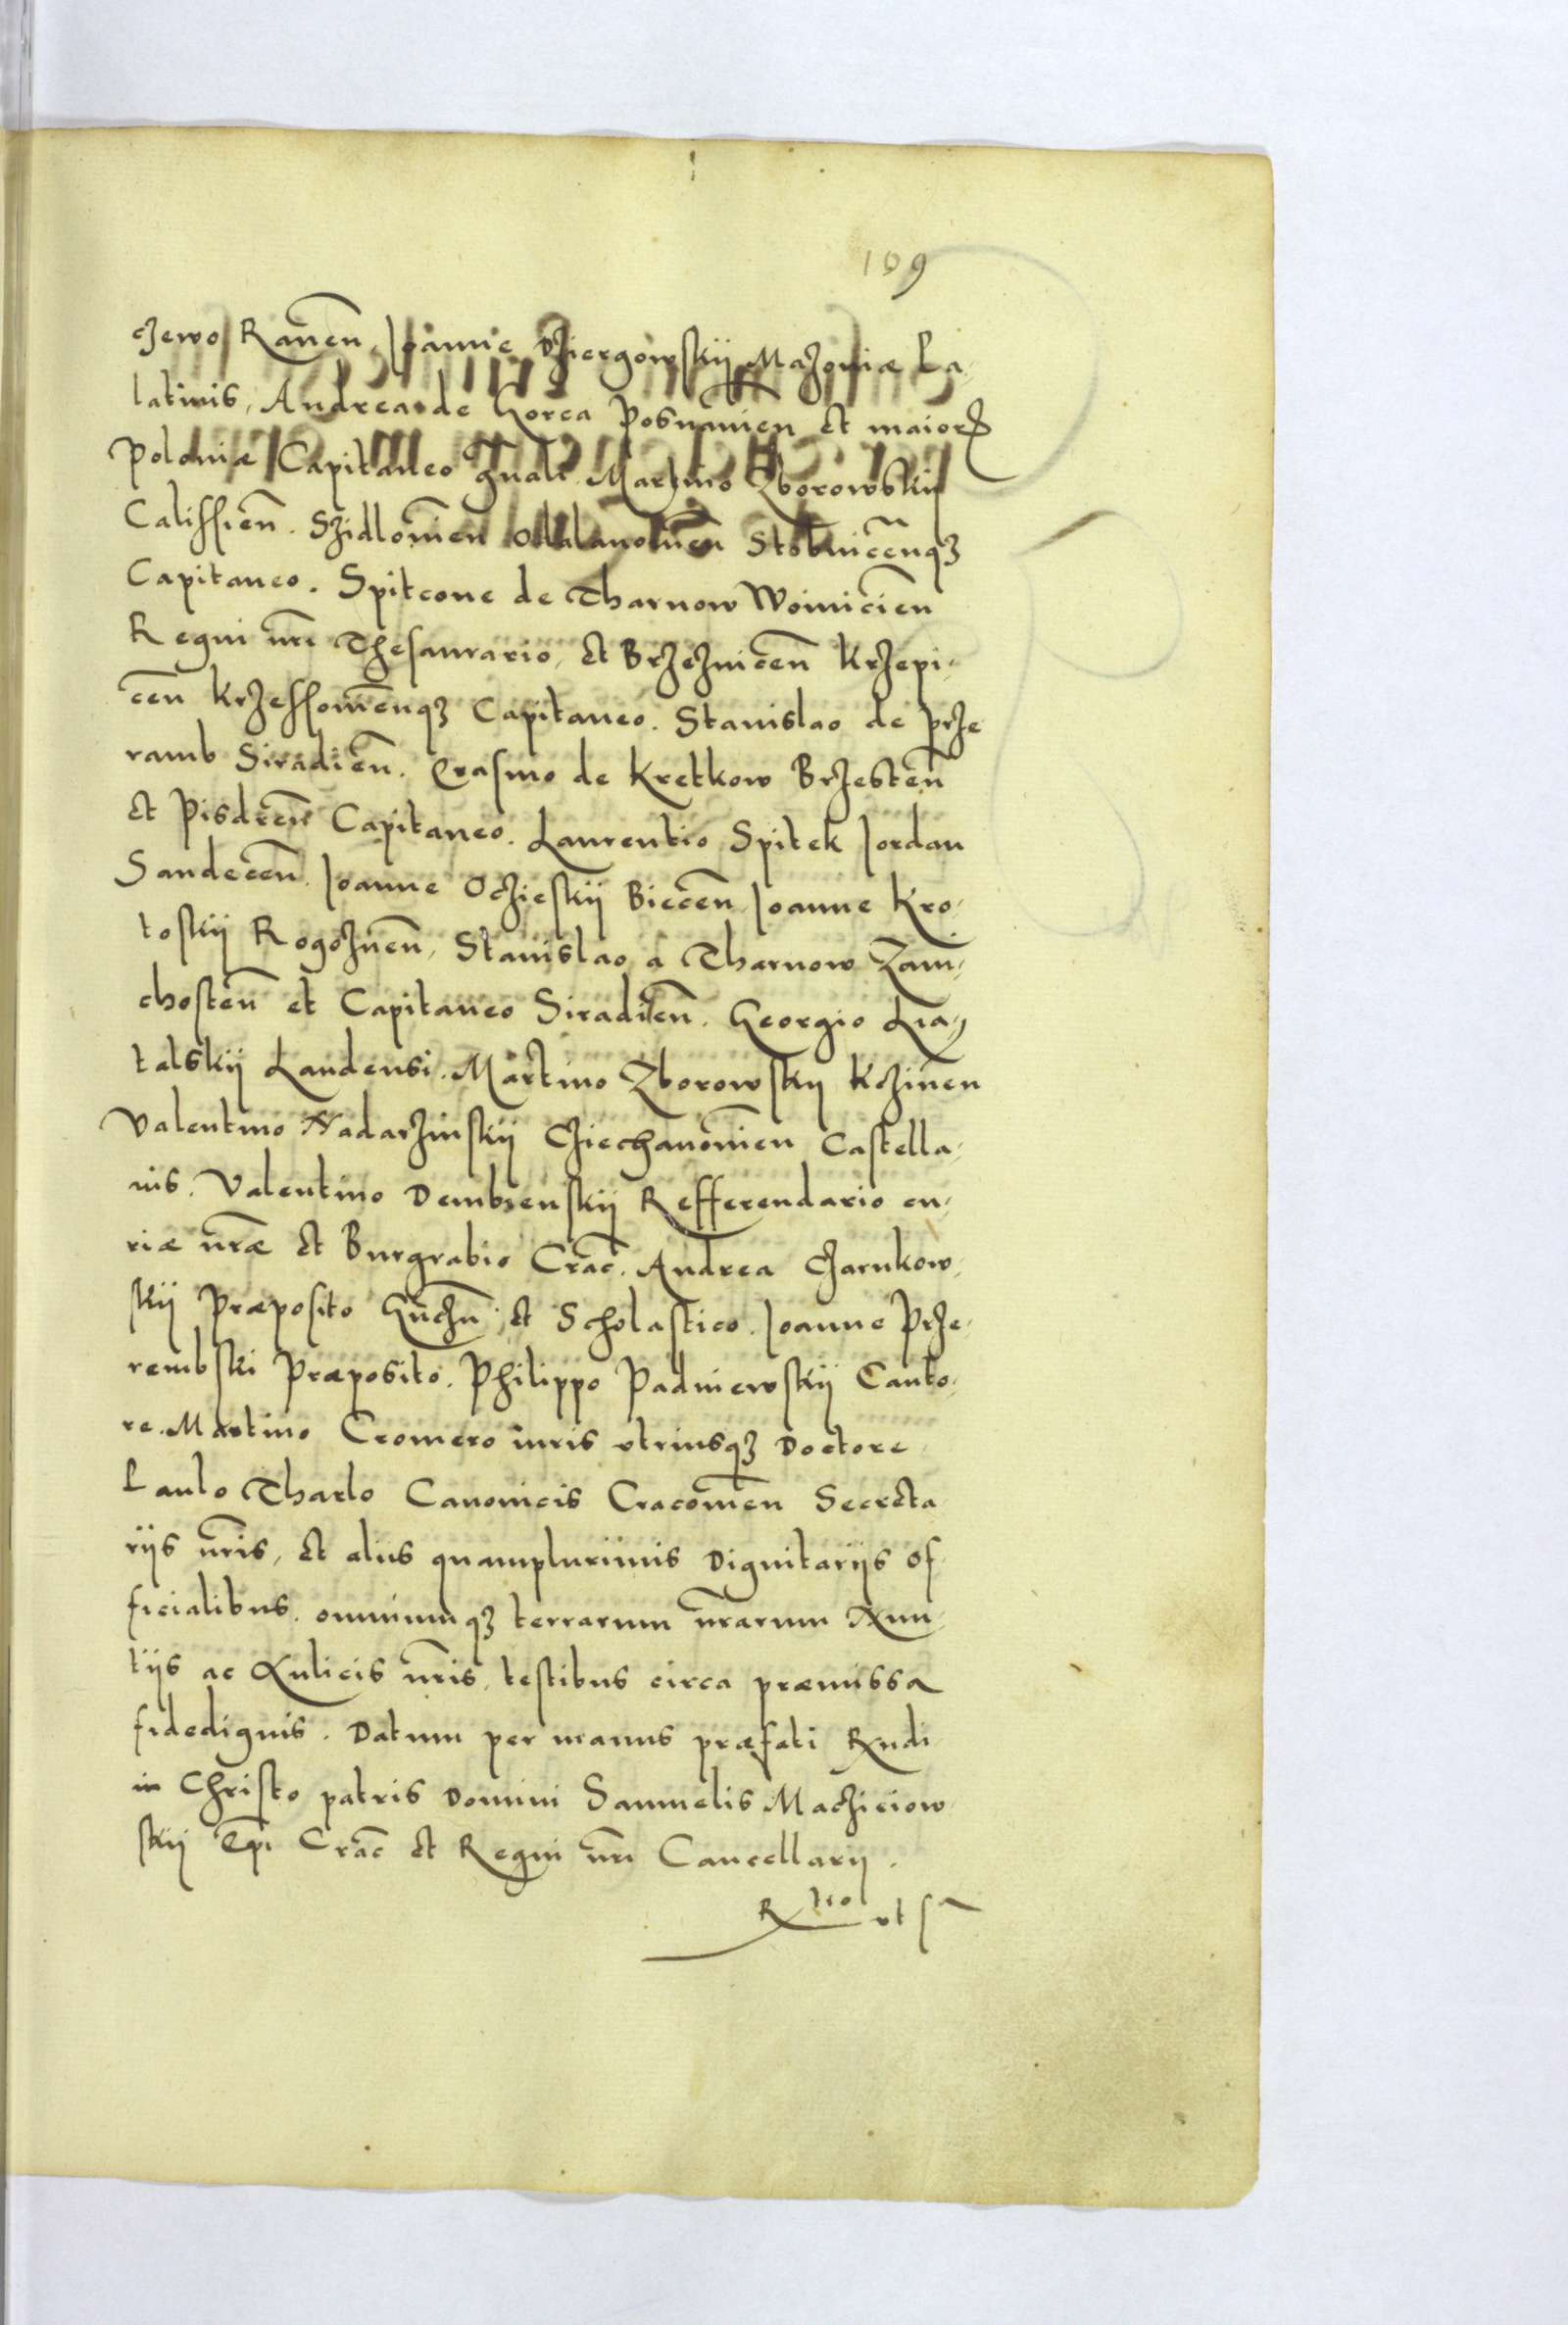 169
czewo Raven̄. Joanne Dziergowskij Mazoviæ Pa-
latinis, Andrea de Gorca Posnanien̄ et maioris
Poloniæ Capitaneo gn̄ali. Martino Zborowskij
Calissien̄. Szidlovien̄ Odalanovien̄ Stobnicen̄q꫱
Capitaneo. Spitcone de Tharnow Woinicien̄
Regni nr̄i Thesaurario, et Brzeznicen̄ Krzepi-
cen̄ Krzessovien̄q꫱ Capitaneo. Stanislao de Prze
ramb Siradien̄. Erasmo de Kretkow Brzesten̄
et Pisdren̄ Capitaneo. Laurentio Spitek Jordan
Sandecen̄. Joanne Oczieskij Biecen̄ Joanne Kro-
toskij Rogoznen̄, Stanislao a Tharnow Zaw-
chosten̄ et Capitaneo Siradien̄. Georgio La-
talskij Landensi. Martino Zborowskij Kczinen̄
Valentino Nadarzinskij Cziechanovien̄ Castella-
nis. Valentino Dembienskij Refferendario cu-
riæ nr̄æ et Burgrabio Crac̄. Andrea Czarnkow-
skij Præposito Gn̄czn̄. et Scholastico. Joanne Prze-
rembski Præposito. Philippo Padniewskij Canto-
re. Martino Cromero iuris utriusq꫱ Doctore
Paulo Tharlo Canonicis Cracovien̄ Secreta
rijs nr̄is, et alijs quamplurimis Dignitarijs of-
ficialibus. omniumq꫱ terrarum nr̄arum Nun-
tijs ac Aulicis nr̄is, testibus circa præmissa
fidedignis. Datum per manus præfati Rn̄di
in Christo patris Domini Samuelis Macziciow-
skij Ep̄i Crac̄ et Regni nr̄i Cancellarij.
Rtio ut s̄